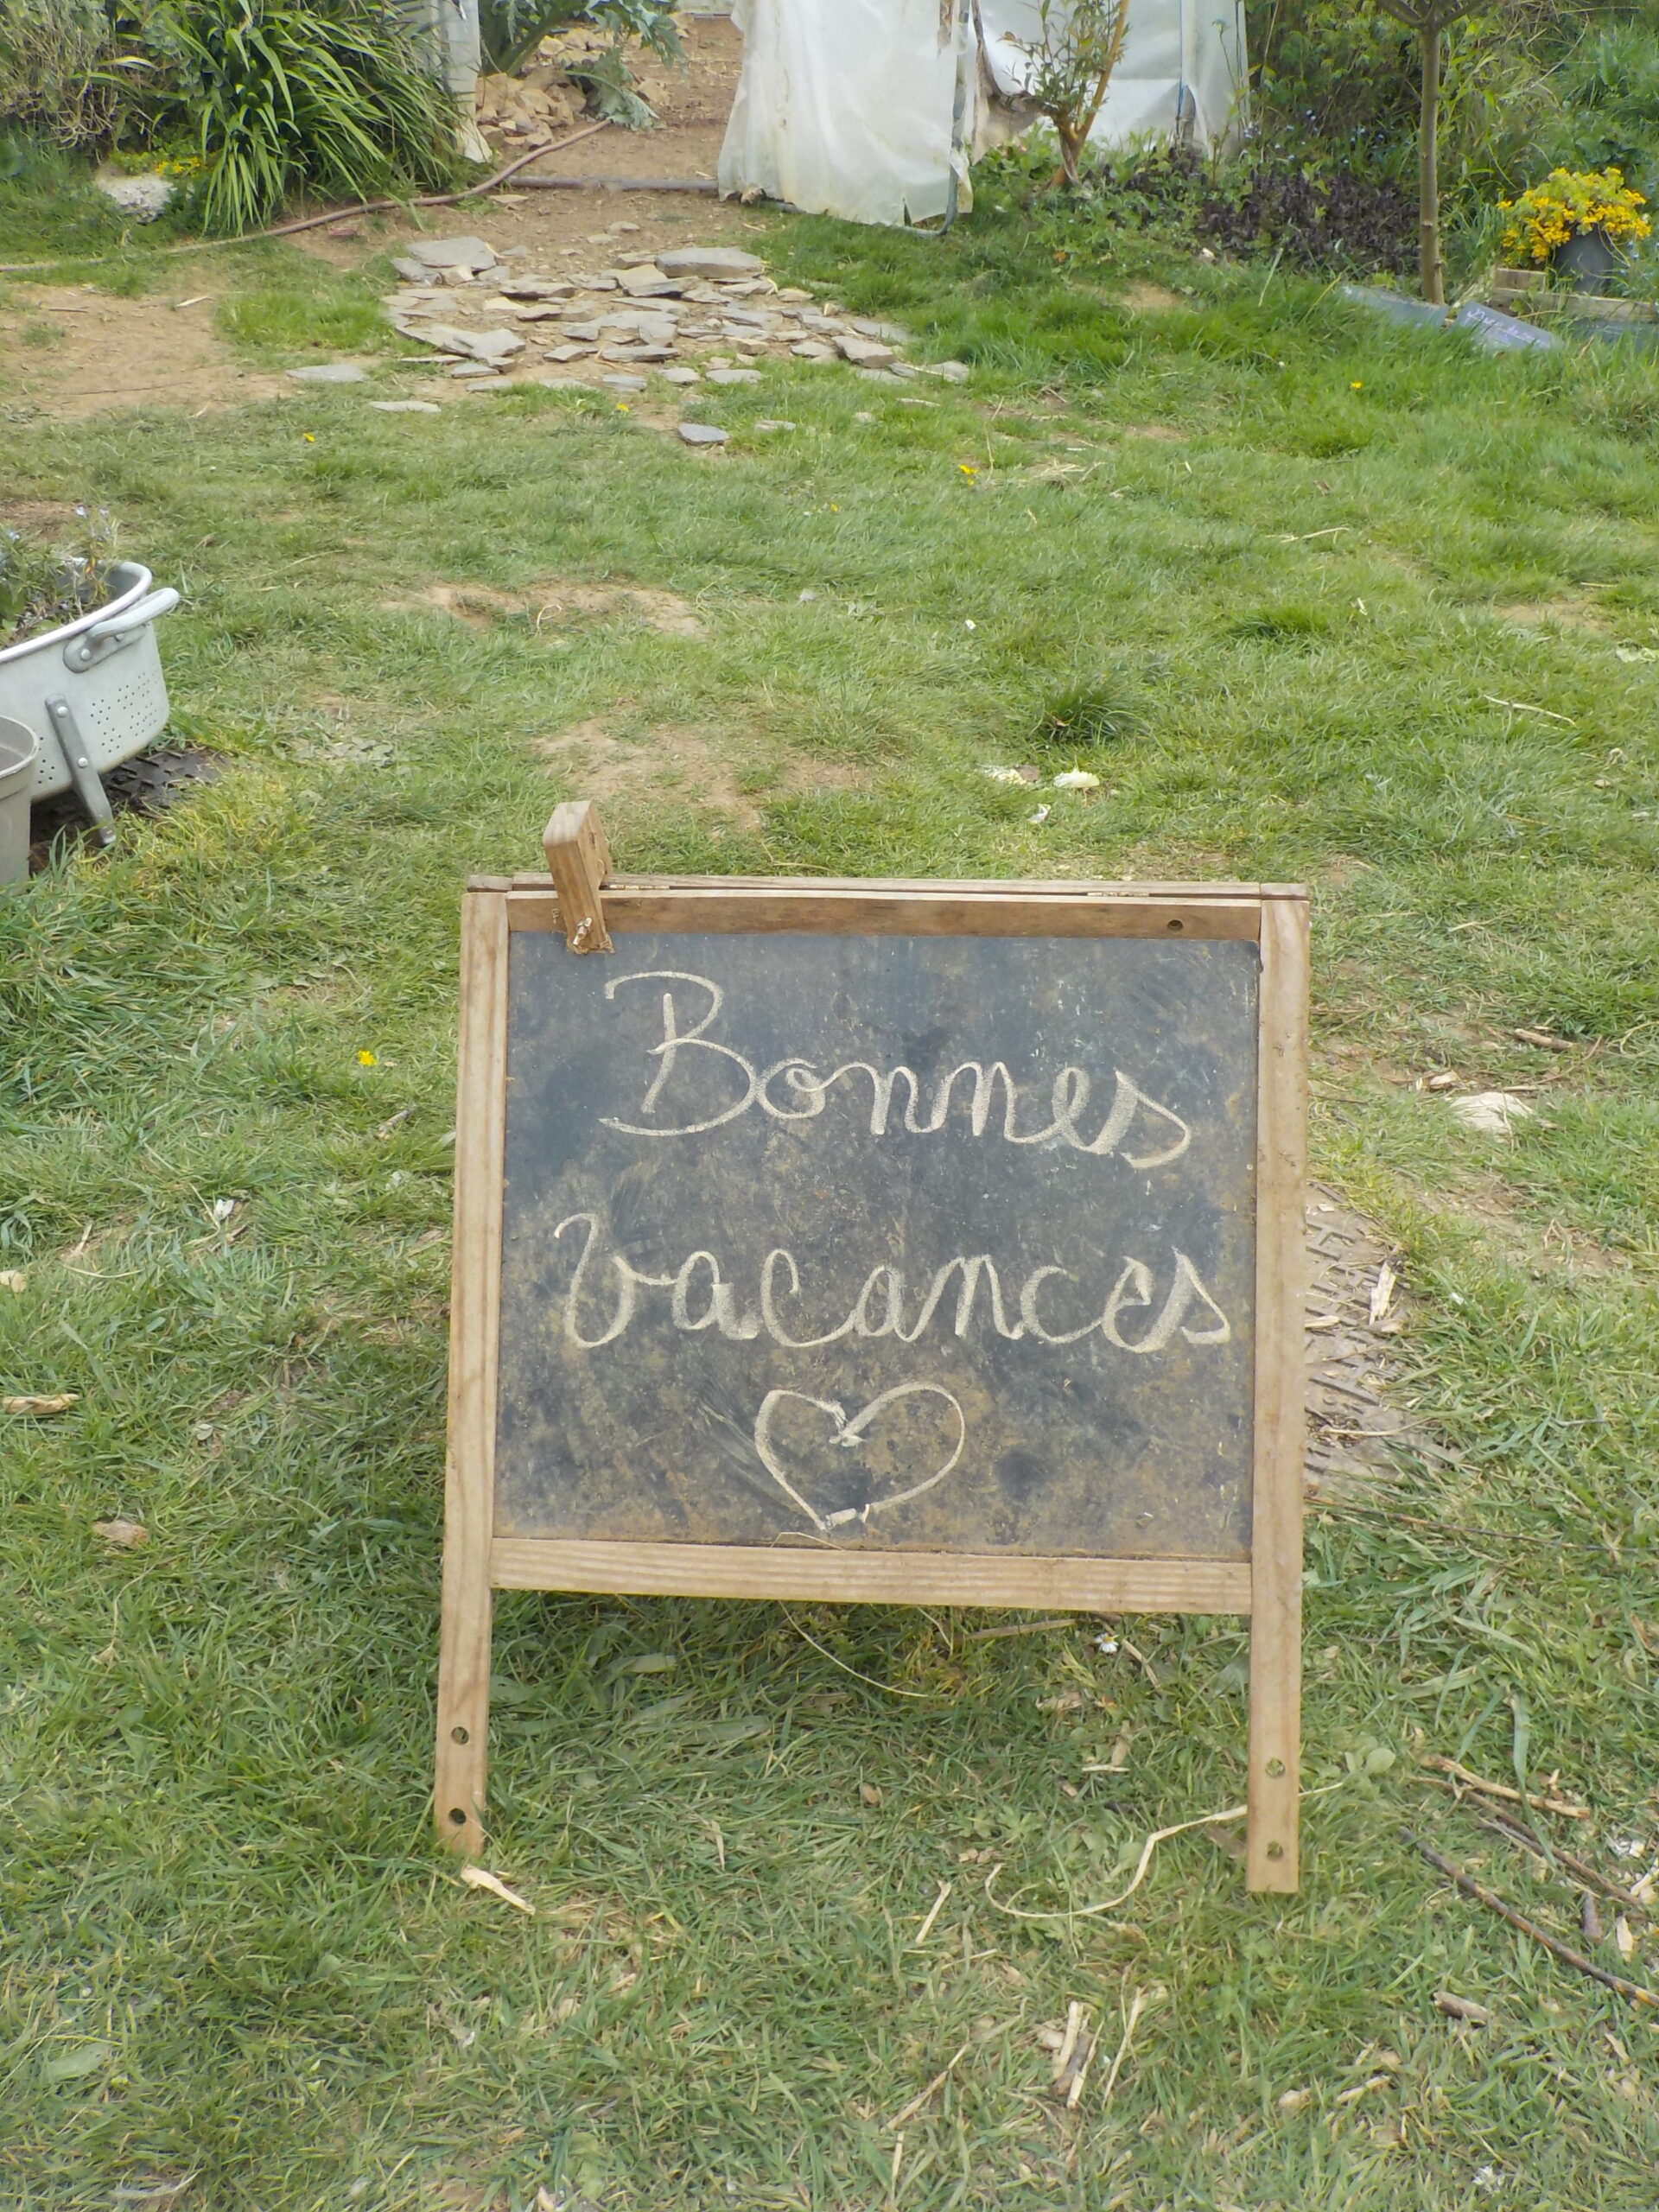 Bonnes
vacances